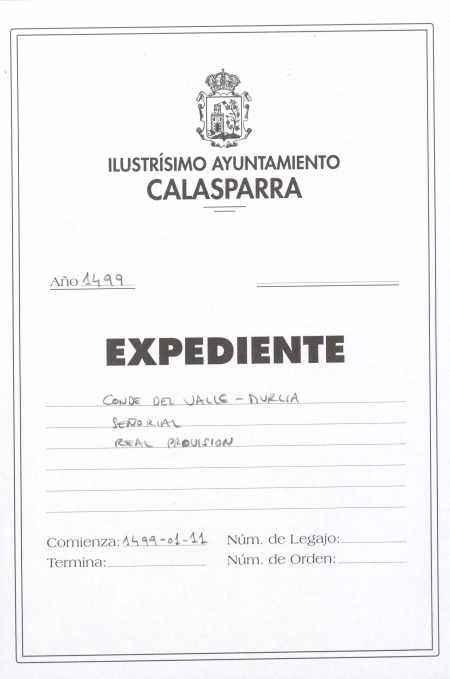 ILUSTRÍSIMO AYUNTAMIENTO
CALASPARRA
Año 1499
EXPEDIENTE
CONDE DEL VALLE - MURCIA
SEÑORIAL
REAL PROVISION
Comienza: 1499-01-11 Núm. de Legajo:
Termina: Núm. de Orden: